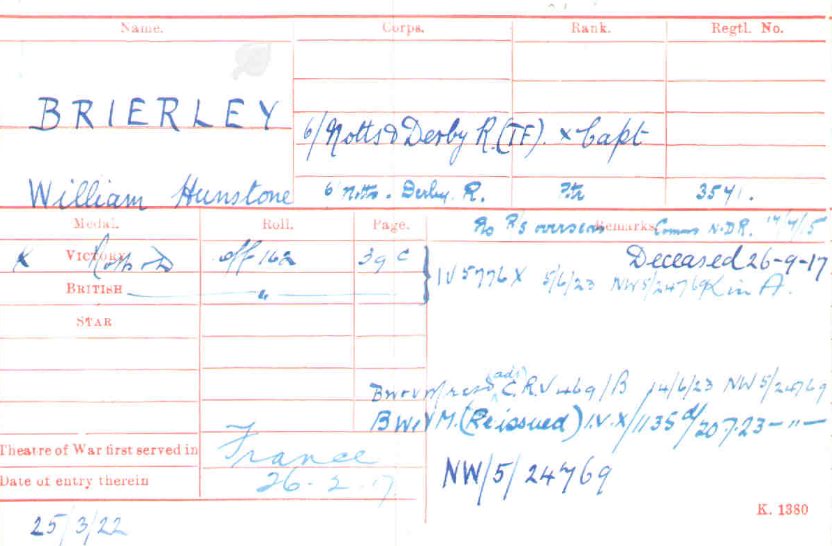 Name. Corps. Rank. Regtl. No.
BRIERLEY
6/Notts & Derby R.(TF). x Capt
William Hunstone 6 Notts. Derby. R. Pte 3541.
Medal. Roll. Page. Remarks.
No R's overseas Comms N.DR. 14/7/15
X VICTORY Notts & D off 162 39 C
Deceased 26-9-17
BRITISH " IV 5776 X 5/6/23 NW5/24769 in A.
STAR
C.R.V 469/B 14/6/23 NW 5/24769
BW&VM. (Re issued) I.V.X/1135 d/ 20.7.23 - " -
Theatre of War first served in France
Date of entry therein 26-2-17
NW/5/24769
K. 1380
25/3/22